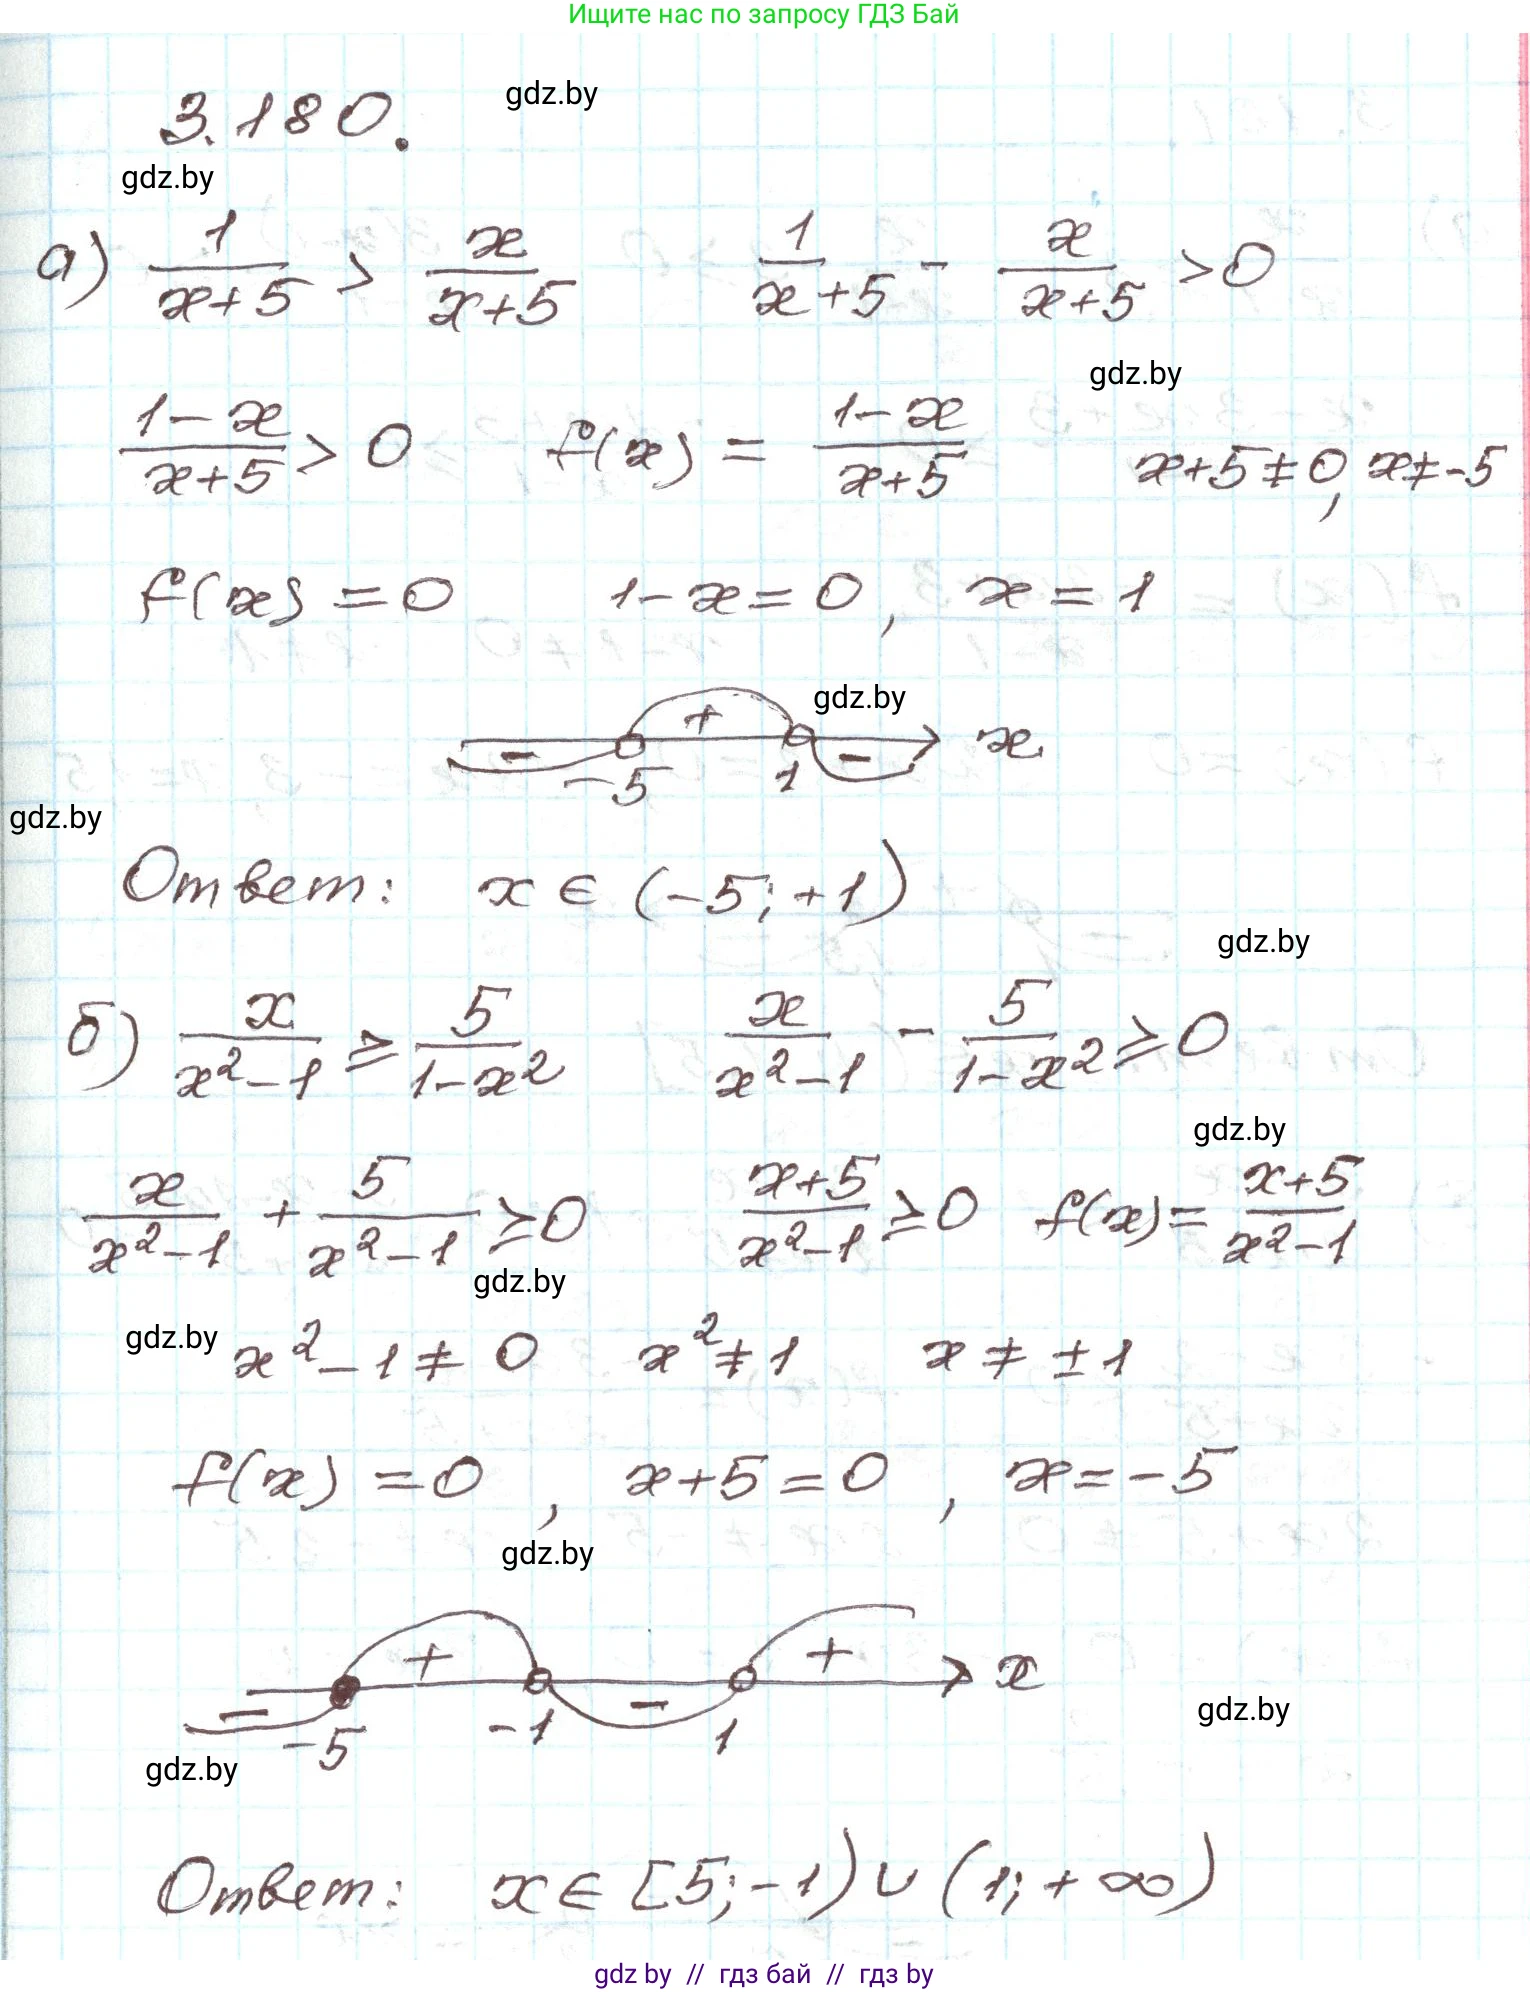 Ищите нас по запросу ГДЗ Бай
3.180. gdz.by
gdz.by
а) 1/(x+5) > x/(x+5)   1/(x+5) - x/(x+5) > 0
gdz.by
(1-x)/(x+5) > 0   f(x) = (1-x)/(x+5)   x+5≠0, x≠-5
f(x) = 0   1-x=0, x=1
gdz.by
- + - x
-5 1
gdz.by
Ответ: x ∈ (-5; +1)
gdz.by
б) x/(x²-1) ≥ 5/(1-x²)   x/(x²-1) - 5/(1-x²) ≥ 0
gdz.by
x/(x²-1) + 5/(x²-1) ≥ 0   (x+5)/(x²-1) ≥ 0   f(x) = (x+5)/(x²-1)
gdz.by
gdz.by
x²-1≠0   x²≠1   x≠±1
f(x) = 0, x+5=0, x=-5
gdz.by
- + - + x
-5 -1 1
gdz.by
gdz.by
Ответ: x∈[5;-1)∪(1;+∞)
gdz by // гдз бай // гдз by